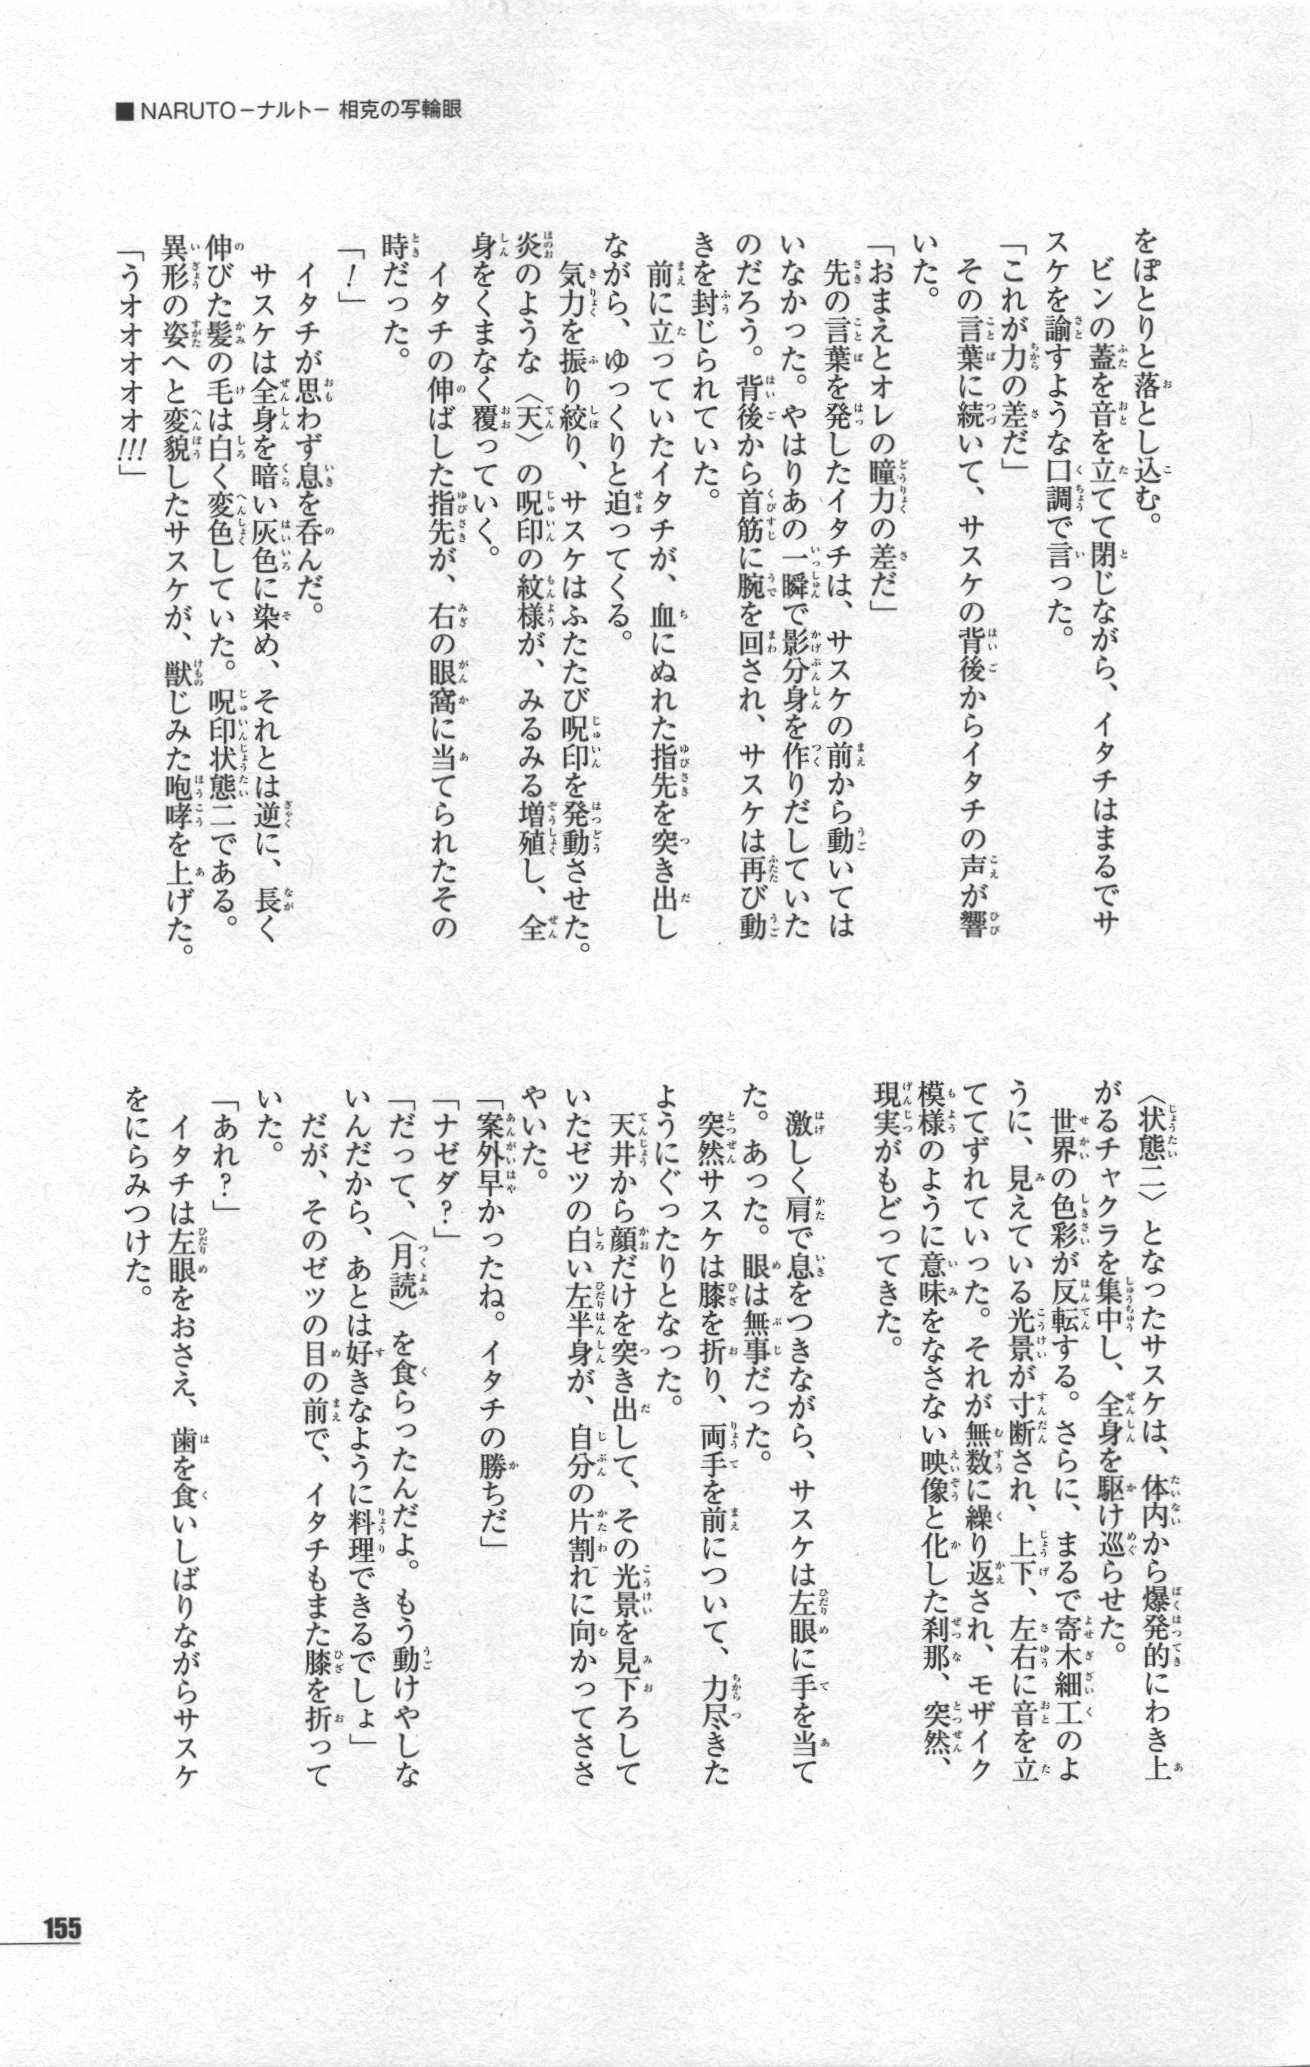 ■NARUTO－ナルト－ 相克の写輪眼
をぽとりと落とし込む。
ビンの蓋を音を立てて閉じながら、イタチはまるでサ
スケを諭すような口調で言った。
「これが力の差だ」
その言葉に続いて、サスケの背後からイタチの声が響
いた。
「おまえとオレの瞳力の差だ」
先の言葉を発したイタチは、サスケの前から動いては
いなかった。やはりあの一瞬で影分身を作りだしていた
のだろう。背後から首筋に腕を回され、サスケは再び動
きを封じられていた。
前に立っていたイタチが、血にぬれた指先を突き出し
ながら、ゆっくりと迫ってくる。
気力を振り絞り、サスケはふたたび呪印を発動させた。
炎のような〈天〉の呪印の紋様が、みるみる増殖し、全
身をくまなく覆っていく。
イタチの伸ばした指先が、右の眼窩に当てられたその
時だった。
「！」
イタチが思わず息を呑んだ。
サスケは全身を暗い灰色に染め、それとは逆に、長く
伸びた髪の毛は白く変色していた。呪印状態二である。
異形の姿へと変貌したサスケが、獣じみた咆哮を上げた。
「うオオオオオ!!!」
〈状態二〉となったサスケは、体内から爆発的にわき上
がるチャクラを集中し、全身を駆け巡らせた。
世界の色彩が反転する。さらに、まるで寄木細工のよ
うに、見えている光景が寸断され、上下、左右に音を立
ててずれていった。それが無数に繰り返され、モザイク
模様のように意味をなさない映像と化した刹那、突然、
現実がもどってきた。
激しく肩で息をつきながら、サスケは左眼に手を当て
た。あった。眼は無事だった。
突然サスケは膝を折り、両手を前について、力尽きた
ようにぐったりとなった。
天井から顔だけを突き出して、その光景を見下ろして
いたゼツの白い左半身が、自分の片割れに向かってささ
やいた。
「案外早かったね。イタチの勝ちだ」
「ナゼダ？」
「だって、〈月読〉を食らったんだよ。もう動けやしな
いんだから、あとは好きなように料理できるでしょ」
だが、そのゼツの目の前で、イタチもまた膝を折って
いた。
「あれ？」
イタチは左眼をおさえ、歯を食いしばりながらサスケ
をにらみつけた。
155